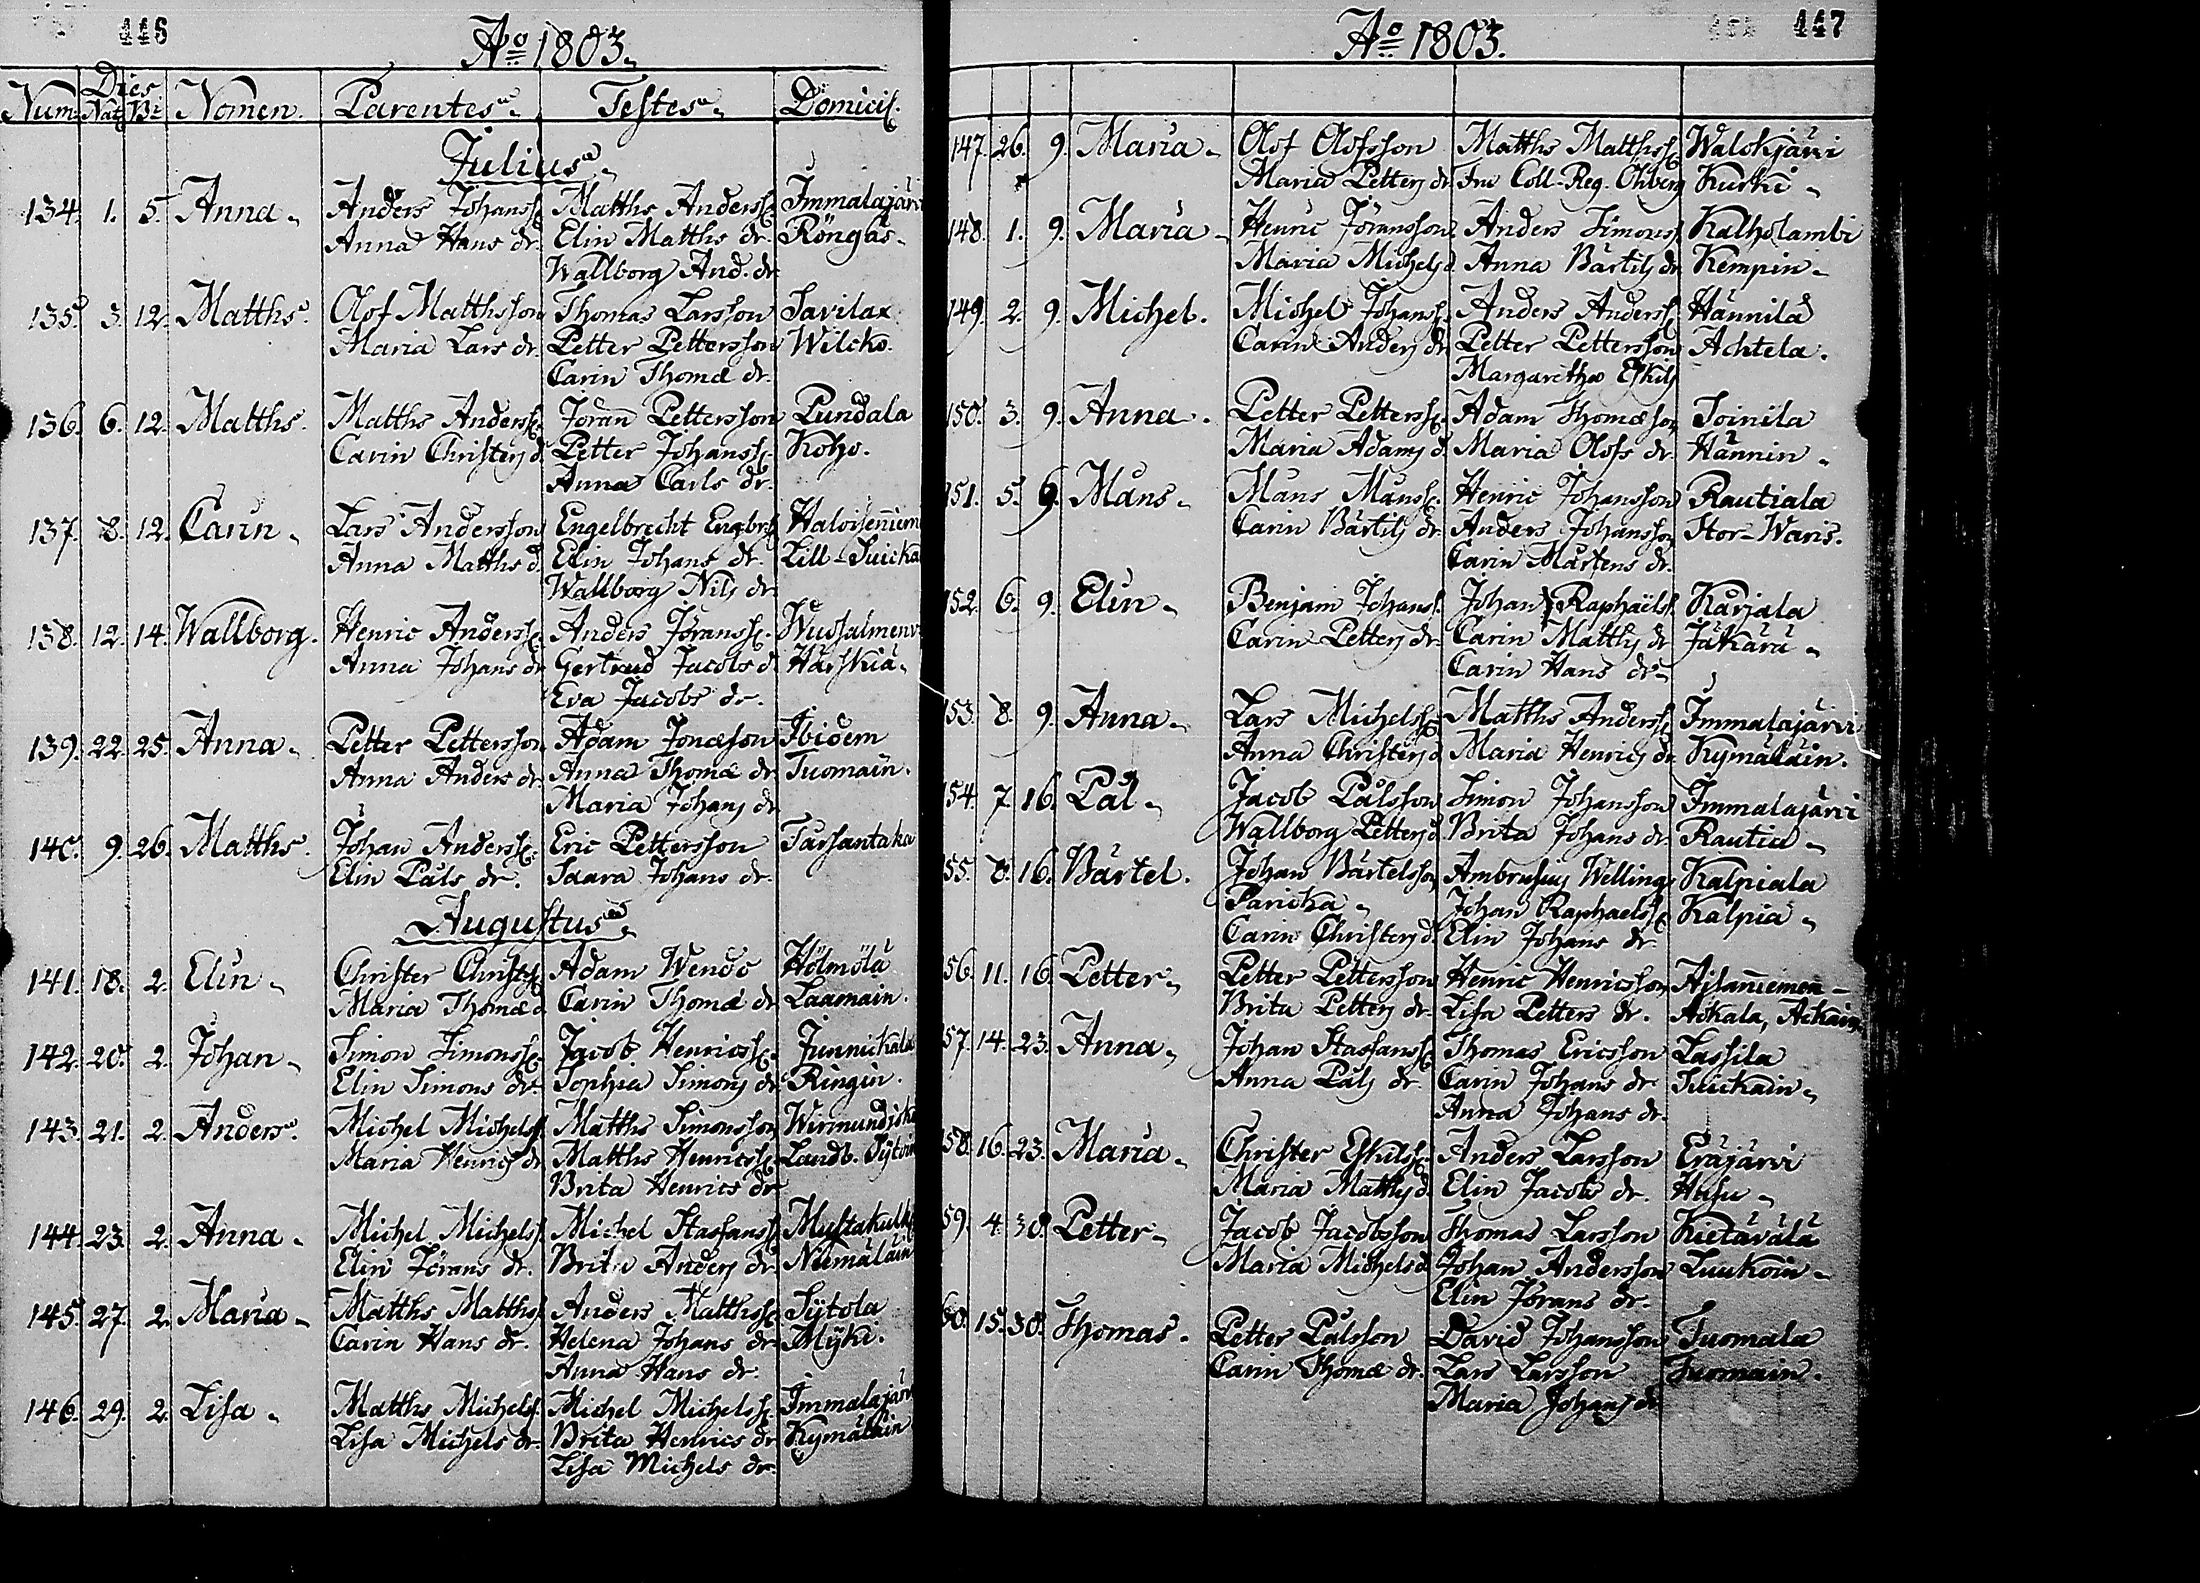 446
Aº 1803.
Dies
Num. Nat. Bt. Nomen. Parentes. Testes. Domicil.
Julius.
134. 1. 5. Anna. Anders Johanss. Matths Anderss. Immalajärvi
Anna Hans dr. Elin Matths dr. Röngäs.
Wallborg And. dr.
135. 3. 12. Matths. Olof Matthsson Thomas Larsson Savilax
Maria Lars dr. Petter Pettersson Wilcko.
Carin Thomæ dr.
136. 6. 12. Matths. Matths Anderss. Jöran Pettersson Pundala
Carin Christers d. Petter Johanss. Koho.
Anna Carls dr.
137. 8. 12. Carin. Lars Andersson Engelbrecht Engbrs.
Anna Matths d. Elin Johans dr. Lill-Suicka
Wallborg Nils dr.
138. 12. 14. Wallborg. Henric Anderss. Anders Jöranss.
Anna Johans dr. Gertrud Jacobs d. Härskiä.
Eva Jacobs dr.
139. 22. 25. Anna. Petter Pettersson Adam Jonæson Ibidem
Anna Anders dr. Anna Thomæ dr. Tuomain.
Maria Johans dr.
140. 9. 26. Matths. Johan Anderss. Eric Pettersson Tarsantaka
Elin Påls dr. Saara Johans dr.
Augustus.
141. 18. 2. Elin. Christer Christs. Adam Wendo Hölmölä
Maria Thomæ d. Carin Thomæ dr. Laamain.
142. 20. 2. Johan. Simon Simonss. Jacob Henricss. Junnickala
Elin Simons dr. Sophia Simons dr. Ringin.
143. 21. 2. Anders. Michel Michels. Matths Simonsson
Maria Henrics dr. Matths Henricss. Landb.
Brita Henrics dr.
144. 23. 2. Anna. Michel Michels. Michel Staffanss. Mustakulk
Elin Jörans dr. Brita Anders dr. Niemäläin
145. 27. 2. Maria. Matths Matths. Anders Matthss. Sÿtola
Carin Hans dr. Helena Johans dr. Mÿki.
Anna Hans dr.
146. 29. 2. Lisa. Matths Michels. Michel Michelss. Immalajärvi
Lisa Michels dr. Brita Henrics dr. Kymäläin
Lisa Michels dr.
447
Aº 1803.
147. 26. 9. Maria. Olof Olofsson Matths Matthss. Walckjärvi
Maria Petters dr. Fru Coll. Reg. Öhberg Kurki.
148. 1. 9. Maria. Henric Jöransson Anders Simonss. Kalholambi
Maria Michels d. Anna Bärtils dr. Kempin.
149. 2. 9. Michel. Michel Johanss. Anders Anderss. Hännilä
Carin Anders dr. Petter Pettersson Achtela.
Margaretha Eskils
150. 3. 9. Anna. Petter Petterss. Adam Thomæson Toinila
Maria Adams d. Maria Olofs dr. Hännin.
151. 5. 9. Måns. Måns Månss. Henric Johansson Rautiala
Carin Bärtils dr. Anders Johansson Stor-Waris.
Carin Mårtens dr.
152. 6. 9. Elin. Benjam Johanss. Johan Raphaëls. Karjala
Carin Petters dr. Carin Matths dr. Jäkärä.
Carin Hans dr.
153. 8. 9. Anna. Lars Michelss. Matths Anderss. Immalajärvi
Anna Christers d. Maria Henrics dr. Kymäläin.
154. 7. 16. Pål. Jacob Pålsson Simon Johansson Immalajärvi
Wallborg Petters d. Brita Johans dr. Rautia.
55. 8. 16. Bärtel. Johan Bärtelsson Ambrusius Welling Kalpiala
Paricka. Johan Raphaelss. Kalpia.
Carin Christers d. Elin Johans dr.
56. 11. 16. Petter. Petter Pettersson Henric Henricsson
Brita Petters dr. Lisa Petters dr. Ackala,
57. 14. 23. Anna. Johan Staffanss. Thomas Ericsson Lassila
Anna Påls dr. Carin Johans dr. Suickain.
Anna Johans dr.
158. 16. 23. Maria. Christer Eskilss. Anders Larsson Eräjärvi
Maria Matths d. Elin Jacobs dr. Husu.
59. 4. 30. Petter. Jacob Jacobsson Thomas Larsson Kietäväla
Maria Michels d. Johan Andersson Luukoin.
Elin Jörans dr.
60. 15. 30. Thomas. Petter Pålsson David Johansson Tuomala
Carin Thomæ dr. Lars Larsson Tuomain.
Maria Johans dr